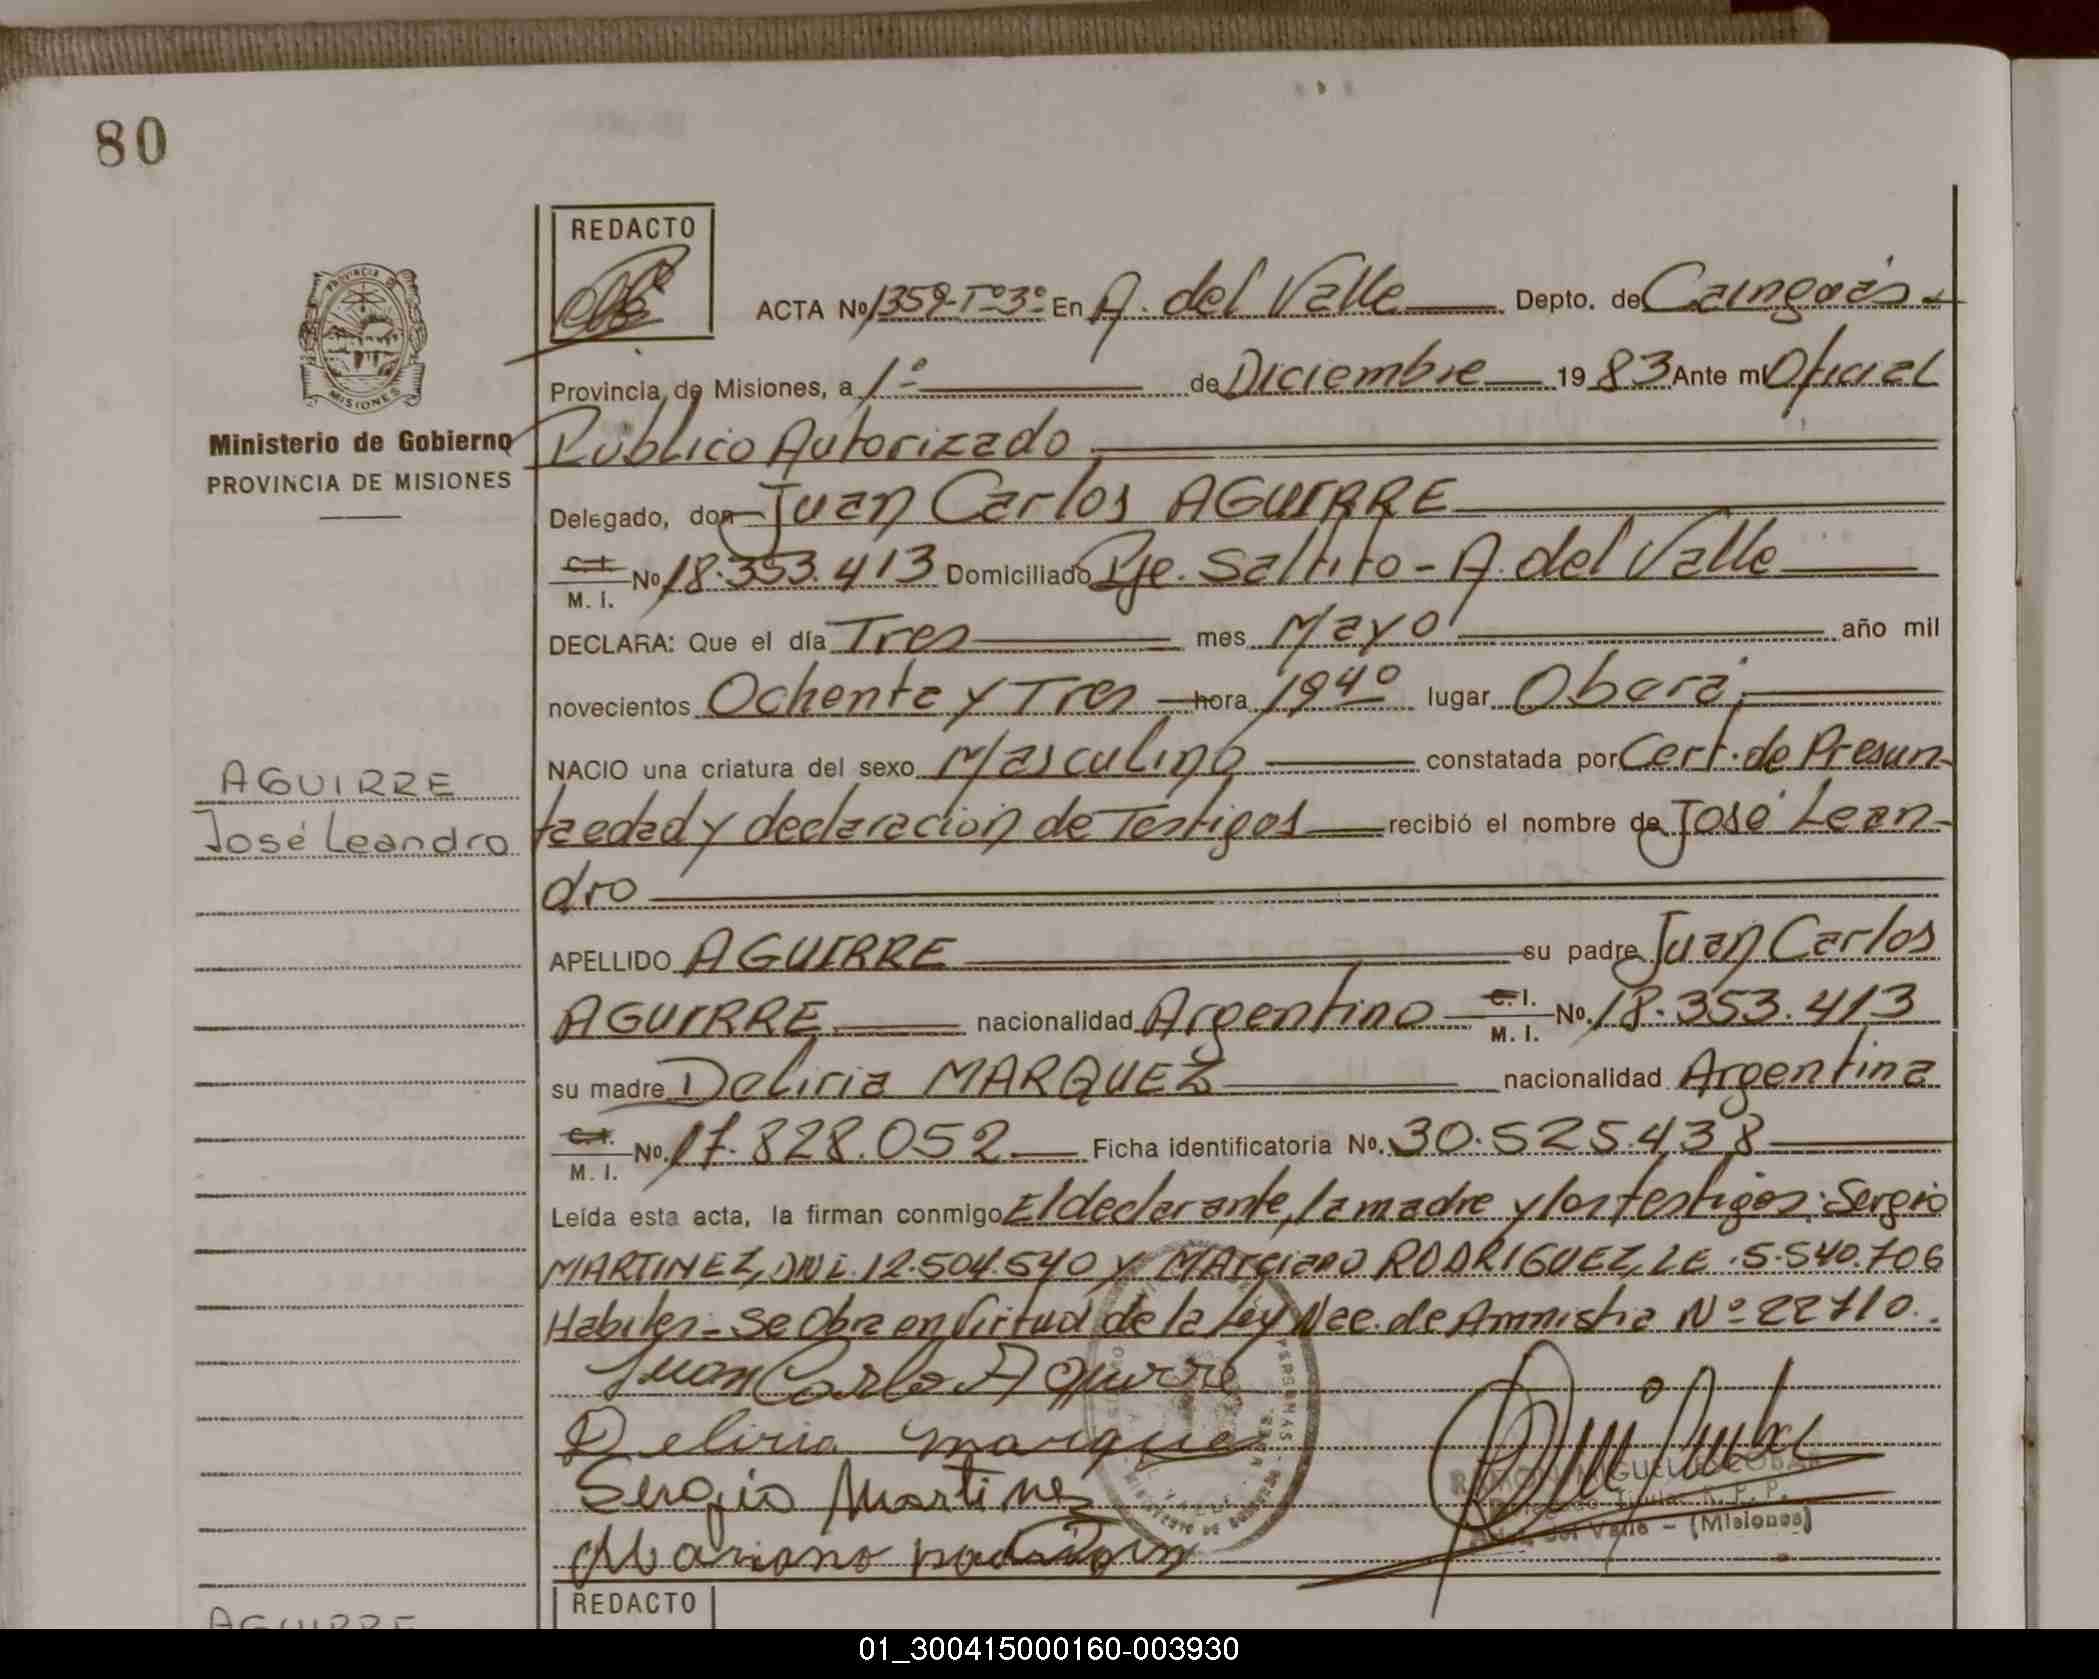 80
REDACTO
PROVINCIA
MISIONES
Ministerio de Gobierno
PROVINCIA DE MISIONES
ACTA No 1359-Tº3º En A. del Valle Depto. de Cainguás
Provincia de Misiones, a 1º de Diciembre 1983 Ante mi Oficial
Público Autorizado
Delegado, don Juan Carlos AGUIRRE
C.I. M. I. No 18.353.413 Domiciliado Pje. Saltito - A. del Valle
DECLARA: Que el día Tres mes Mayo año mil
novecientos Ochenta y Tres hora 19 40 lugar Oberá
NACIO una criatura del sexo Masculino constatada por Cert. de Presun-
ta edad y declaración de Testigos recibió el nombre de José Lean-
dro
AGUIRRE
José Leandro
APELLIDO AGUIRRE su padre Juan Carlos
AGUIRRE nacionalidad Argentino C.I. M. I. No. 18.353.413
su madre Deliria MARQUEZ nacionalidad Argentina
C.I. M. I. No. 17.828.052 Ficha identificatoria No. 30.525.438
Leída esta acta, la firman conmigo El declarante, la madre y los testigos: Sergio
MARTINEZ, DNI. 12.504.540 y Marciano RODRIGUEZ, LE. 5.540.706
Habiles - Se Obra en Virtud de la Ley Nac. de Amnistia Nº 22710.
Juan Carlos Aguirre
Deliria Marquez
Sergio Martinez
RAMON MIGUEL ESCOBAR
Delegado Titular R. P. P.
A. del Valle - (Misiones)
REDACTO
AGUIRRE
01_300415000160-003930